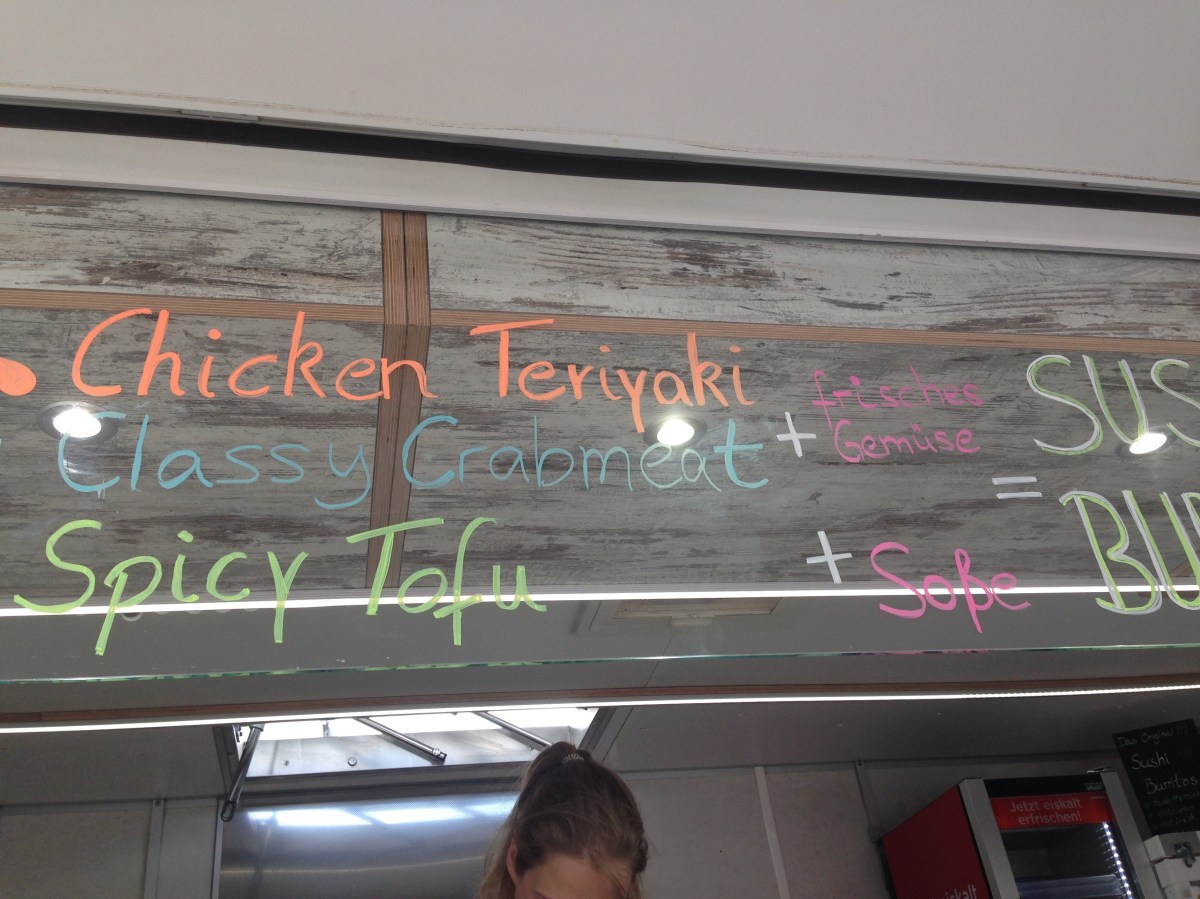 Chicken Teriyaki
Classy Crabmeat
Spicy Tofu
+ frisches
Gemüse
+ Soße
=
SUS
BU
Jetzt eiskalt
erfrischen!
eiskalt
Das Original
Sushi
Burritos